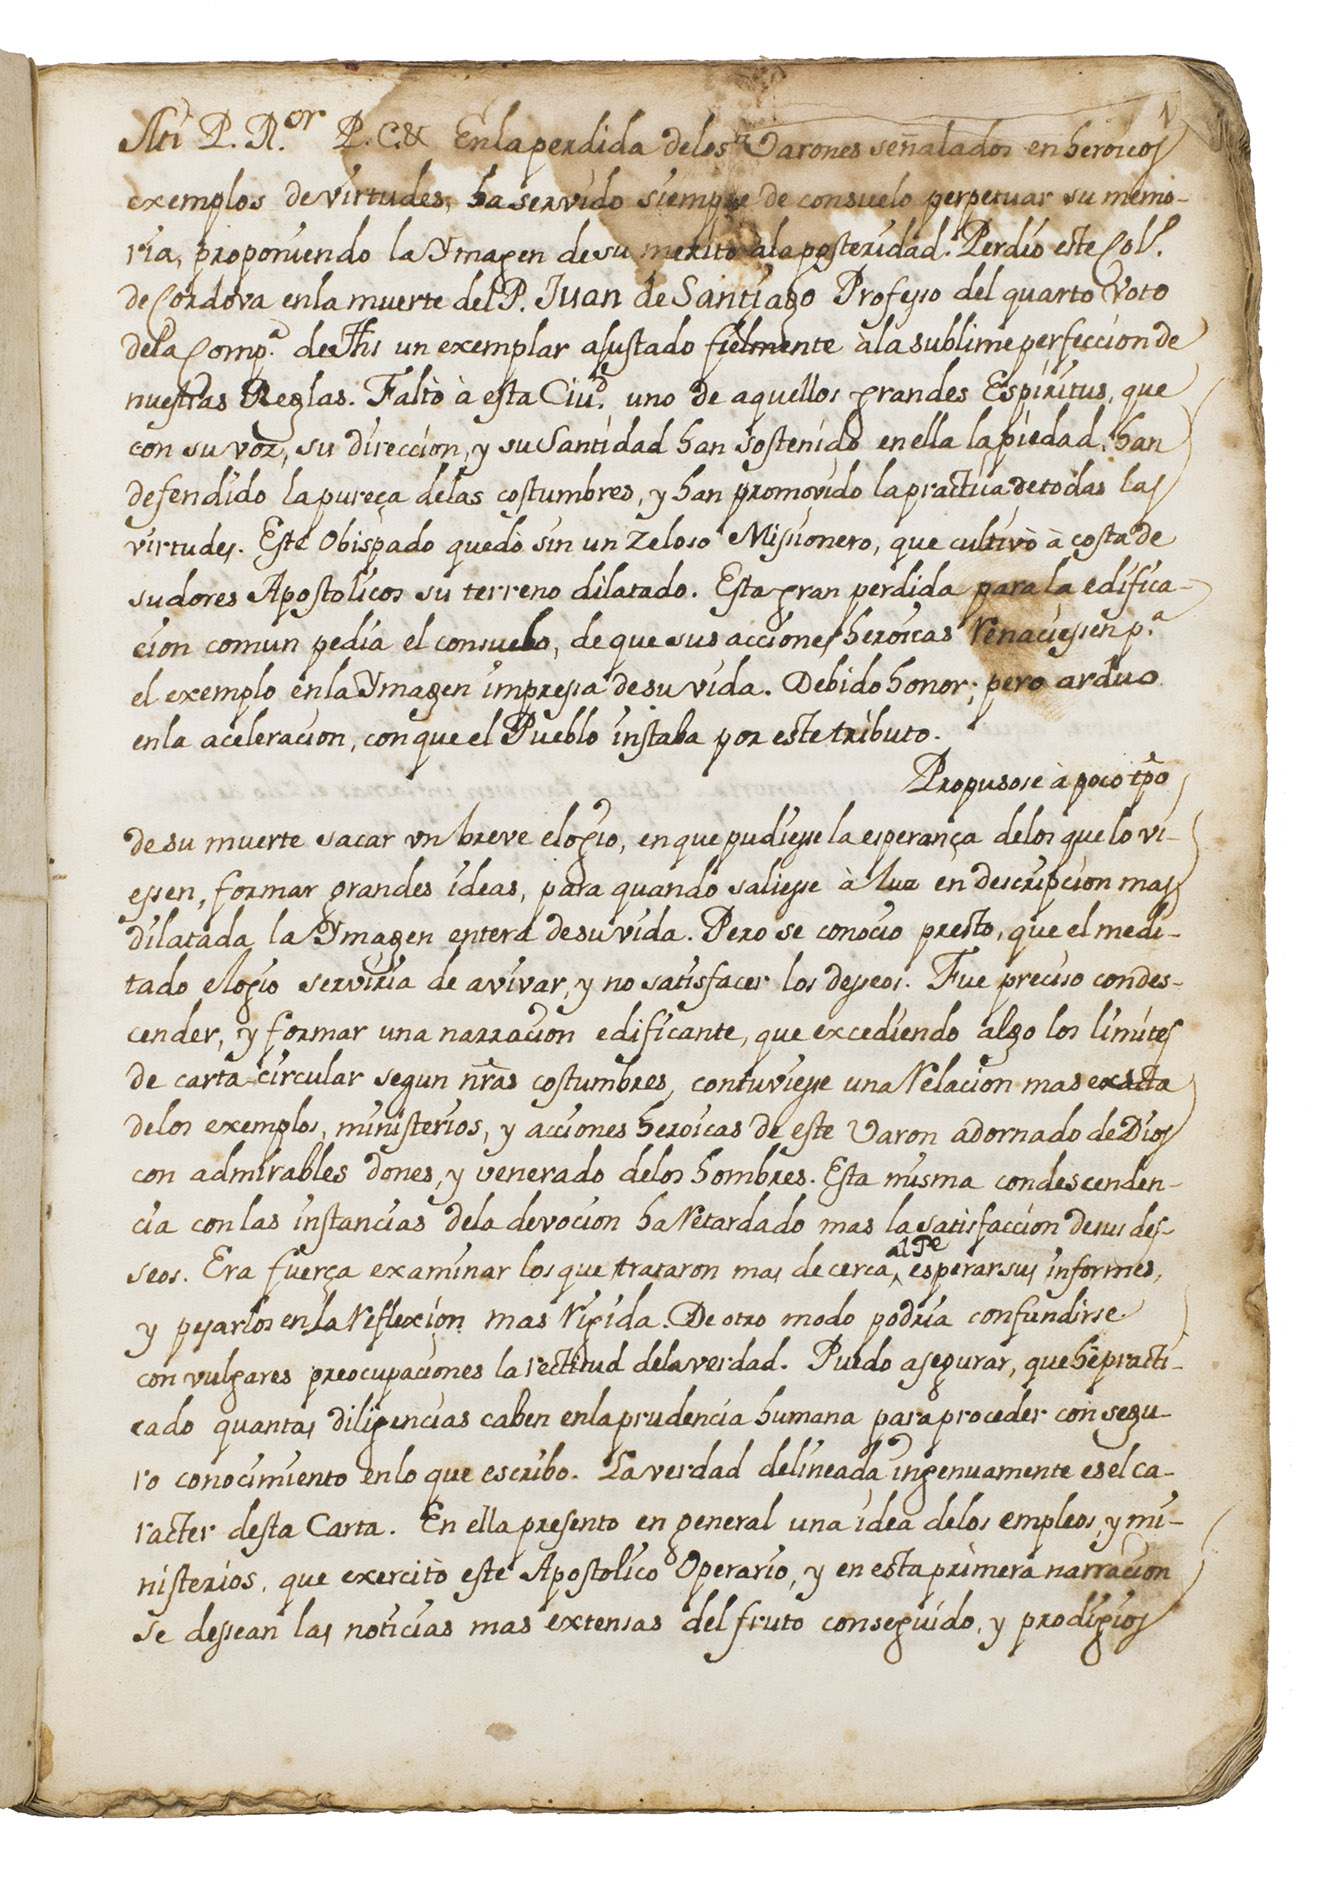 Mi P. R.or P. C. & En la perdida delos Varones señalados en heroicos
exemplos de virtudes, ha servido siempre de consuelo perpetuar su memo-
ria, proponiendo la Ymagen de su merito ala posteridad. Perdió este Col.
de Cordova en la muerte del P. Juan de Santiago Professo del quarto Voto
dela Comp.a de Jhs un exemplar ajustado fielmente à la sublime perfeccion de
nuestras Reglas. Faltò à esta Ciud. uno de aquellos grandes Espiritus, que
con su voz, su direccion, y su Santidad han sostenido en ella la piedad, han
defendido la pureça delas costumbres, y han promovido la practica de todas las
virtudes. Este Obispado quedò sin un zeloso Missionero, que cultivò à costa de
sudores Apostolicos su terreno dilatado. Esta gran perdida para la edifica-
cion comun pedia el consuelo, de que sus acciones heroicas Renaciessen p.a
el exemplo en la Ymagen impressa de su vida. Debido honor; pero arduo
en la aceleracion, con que el Pueblo instaba por este tributo.
Propusose à poco tpo
de su muerte sacar vn breve elogio, en que pudiesse la esperança delos que lo vi-
essen, formar grandes ideas, para quando saliesse à luz en descripcion mas
dilatada la Ymagen entera de su vida. Pero se conocio presto, que el medi-
tado elogio serviria de avivar, y no satisfacer los desseos. Fue preciso condes-
cender, y formar una narracion edificante, que excediendo algo los limites
de carta circular segun nras costumbres, contuviesse una Relacion mas exacta
delos exemplos, ministerios, y acciones heroicas de este Varon adornado de Dios
con admirables dones, y venerado delos hombres. Esta misma condescenden-
cia con las instancias dela devocion ha Retardado mas la satisfaccion de sus des-
seos. Era fuerça examinar los que trataron mas de cerca al Pe, esperar sus informes,
y pesarlos en la Reflexion mas Rigida. De otro modo podria confundirse
con vulgares preocupaciones la rectitud dela verdad. Puedo asegurar, que hè practi-
cado quantas diligencias caben en la prudencia humana para proceder con segu-
ro conocimiento en lo que escribo. La verdad delineada ingenuamente es el ca-
racter desta Carta. En ella presento en general una idea delos empleos, y mi-
nisterios, que exercitò este Apostolico Operario, y en esta primera narracion
se dessean las noticias mas extensas del fruto conseguido, y prodigios